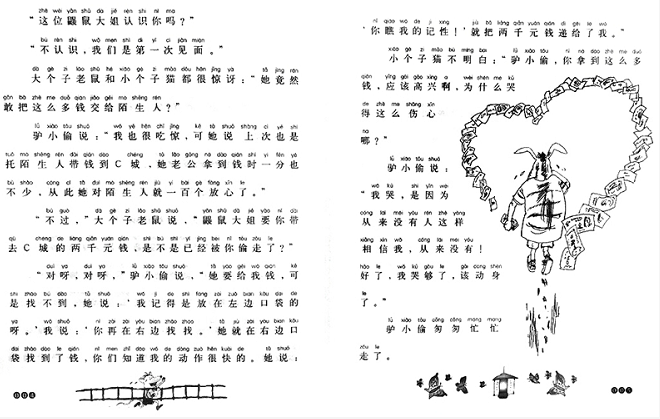 zhè wèi yǎn shǔ dà jiě rèn shi nǐ ma
“这位鼹鼠大姐认识你吗？”
bú rèn shi wǒ men shì dì yī cì jiàn miàn
“不认识，我们是第一次见面。”
大个子老鼠和小个子猫都很惊讶：“她竟然
敢把这么多钱交给陌生人？”
驴小偷说：“我也很吃惊，可她说上次也是
托陌生人带钱到C城，她老公拿到钱时一分也
不少，从此她对陌生人就一百个放心了。”
“不过，”大个子老鼠说，“鼹鼠大姐要你带
去C城的两千元钱，是不是已经被你偷走了？”
“对呀，对呀，”驴小偷说，“她要给我钱，可
是找不到，她说：‘我记得是放在左边口袋的
呀。’我说：‘你再在右边找找。’她就在右边口
袋找到了钱，你们知道我的动作很快的。她说：
004
‘你瞧我的记性！’就把两千元钱递给了我。”
小个子猫不明白：“驴小偷，你拿到这么多
钱，应该高兴啊，为什么哭
得这么伤心
哪？”
驴小偷说：
“我哭，是因为
从来没有人这样
相信我，从来没有！
好了，我哭够了，该动身
了。”
驴小偷匆匆忙忙
走了。
005